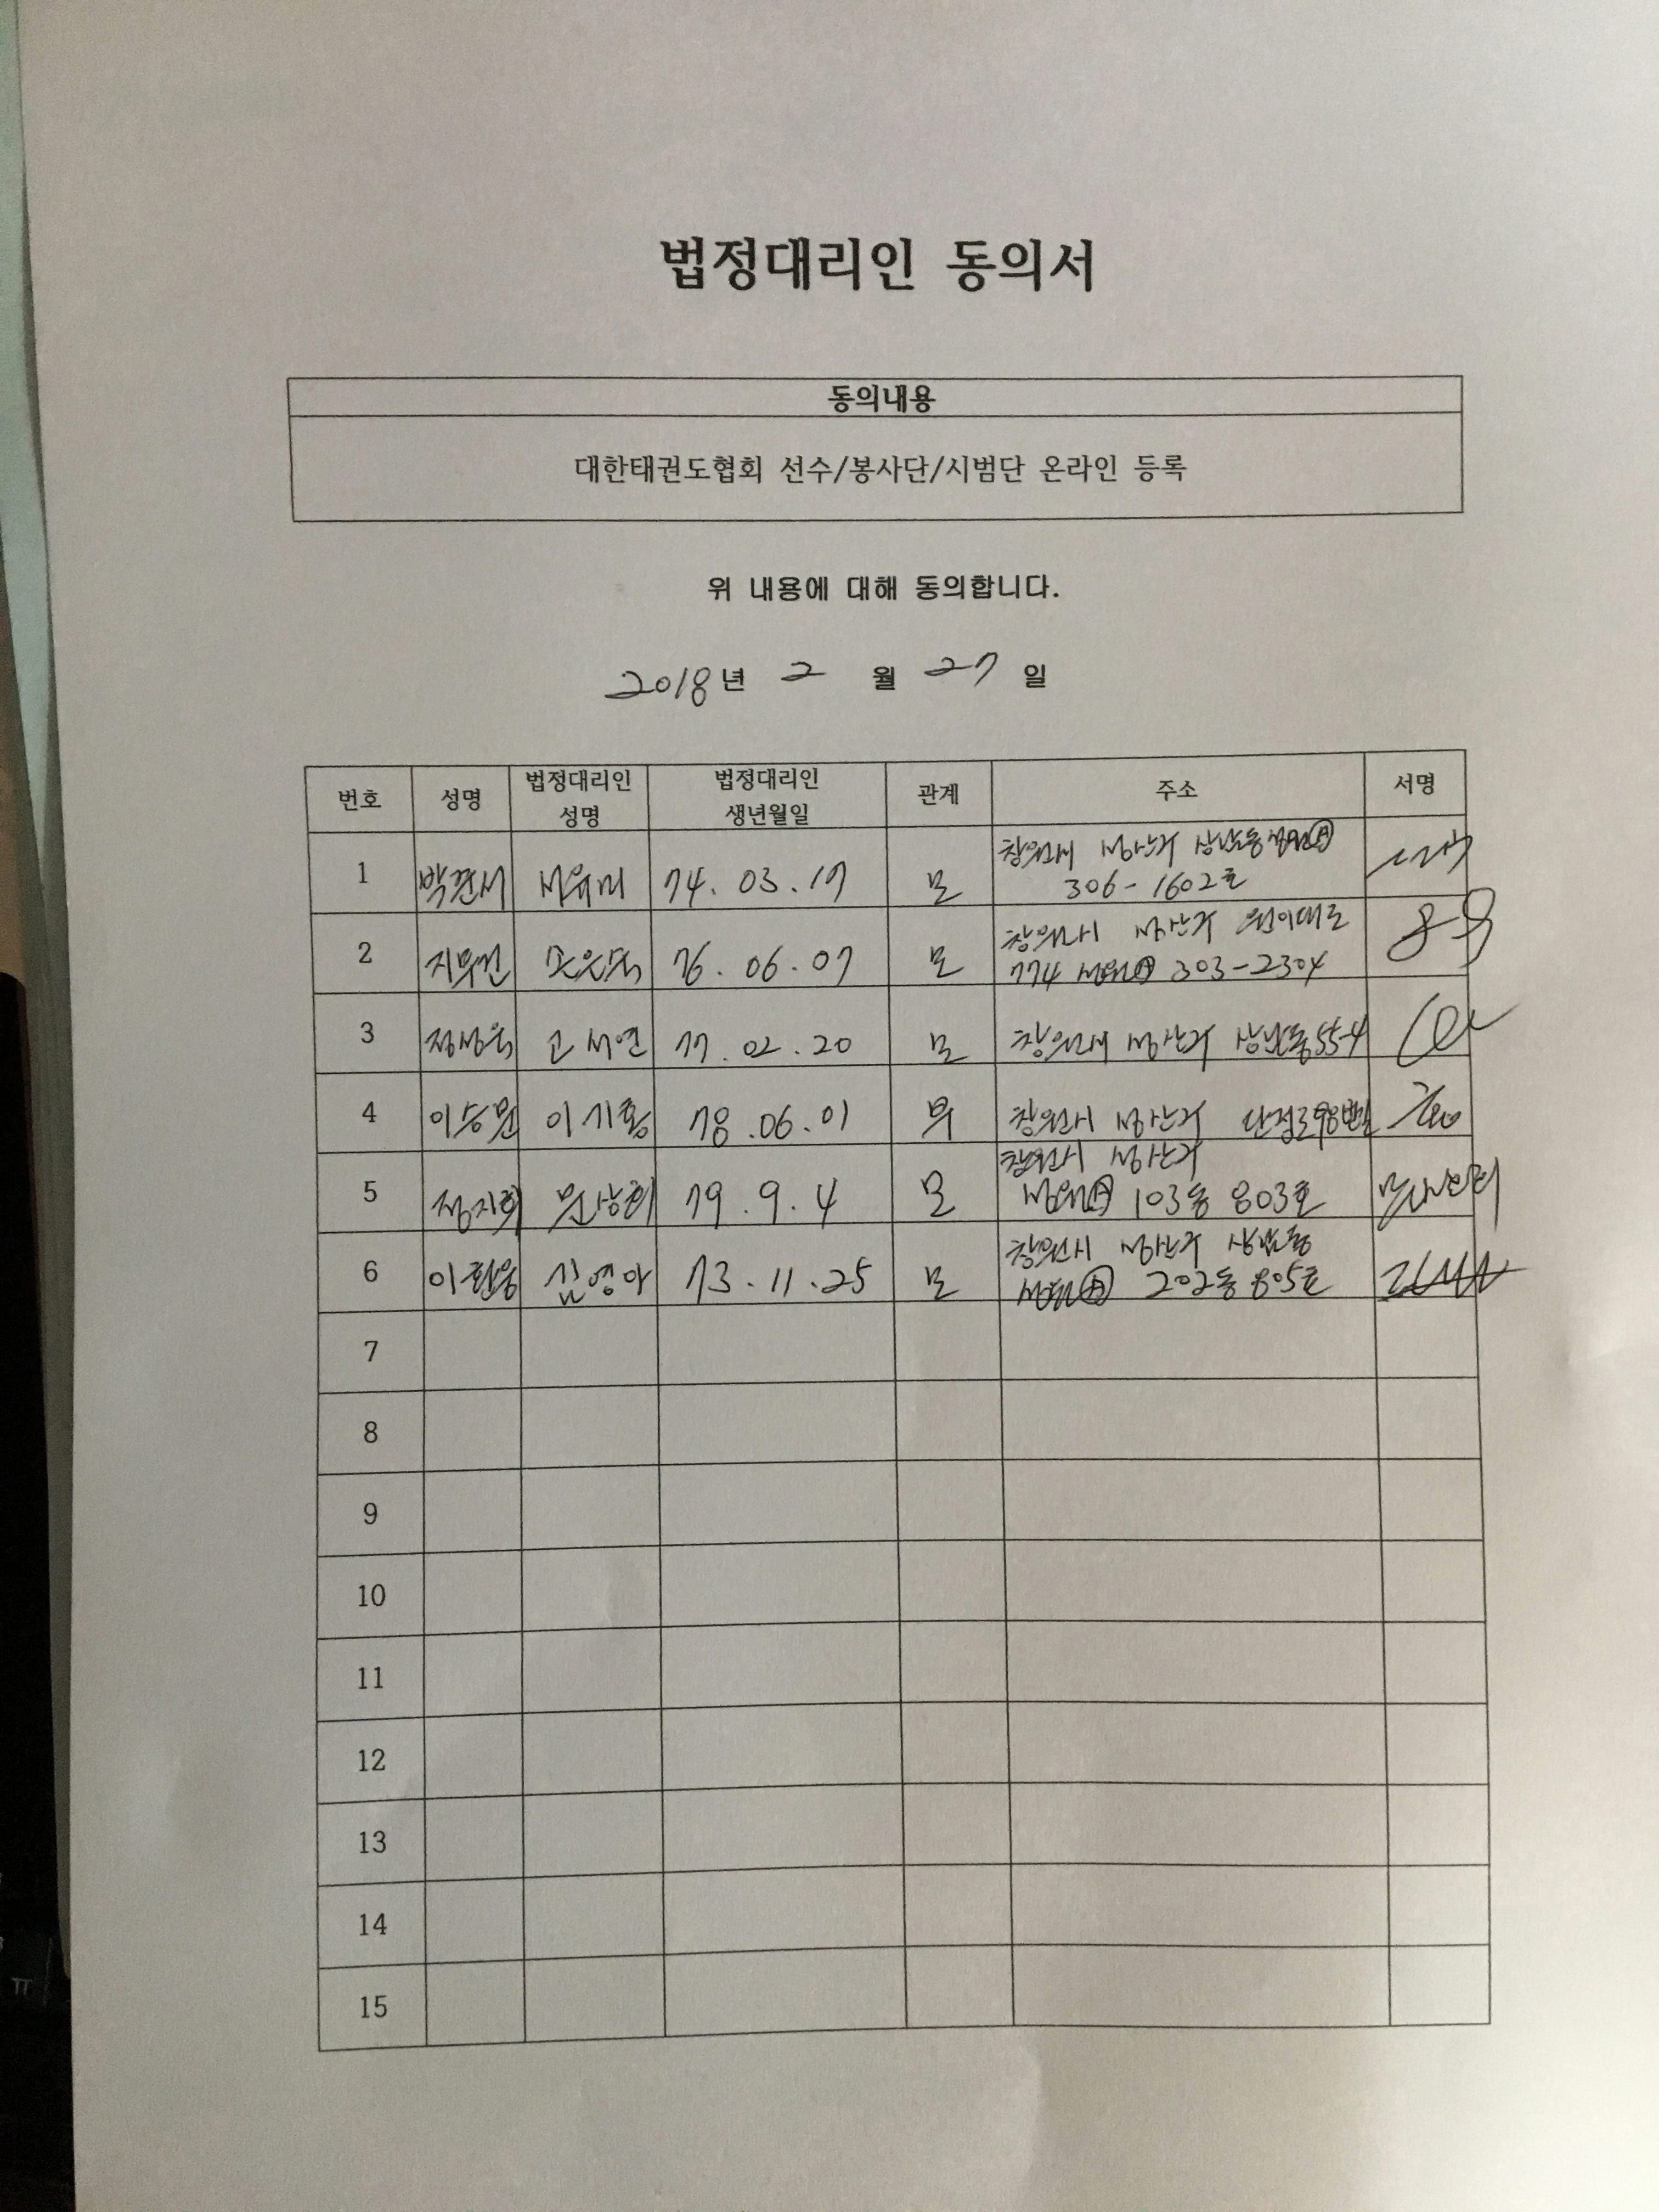 법정대리인 동의서
동의내용
대한태권도협회 선수/봉사단/시범단 온라인 등록
위 내용에 대해 동의합니다.
2018년 2 월 27 일
번호 성명 법정대리인 성명 법정대리인 생년월일 관계 주소 서명
1 박준서 서유미 74. 03. 17 모 창원시 성산구 상남동 성원㉵
306-1602호
2 지우건 손은숙 76. 06. 07 모 창원시 성산구 원이대로
774 성원㉵ 303-2304
3 정성욱 고서연 77. 02. 20 모 창원시 성산구 상남동 55-4
4 이승문 이기홍 78. 06. 01 부 창원시 성산구
5 정지희 문상희 79. 9. 4 모 창원시 성산구
성원㉵ 103동 803호
6 이환웅 김영아 73. 11. 25 모 창원시 성산구 상남동
성원㉵ 202동 805호
7
8
9
10
11
12
13
14
15